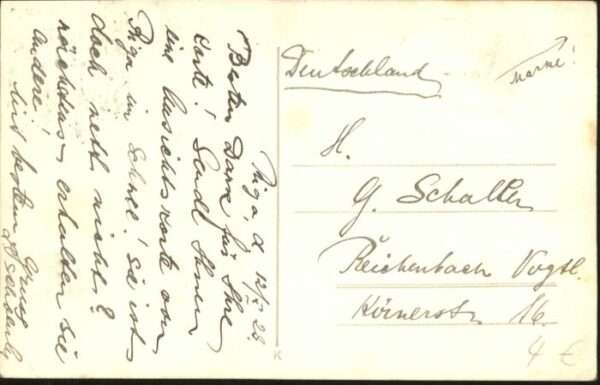 Riga, d. 12/I 28.
Besten Dank für Ihre
Karte! Sende Ihnen
eine Ansichtskarte von
Riga im Schnee! Sie ist
doch nett nicht?
nächstens erhalten Sie
Andere!
Mit besten Gruss
Deutschland
Marke!
H.
G. Schaller
Reichenbach Vogtl.
Körnerstr. 16.
K
4 €